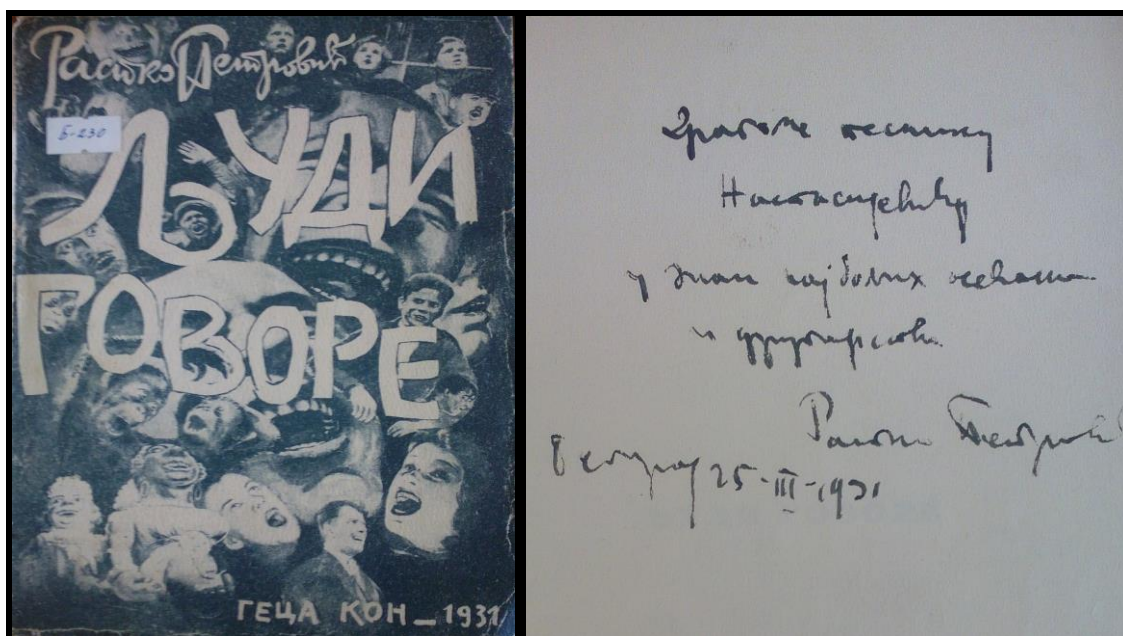 Растко Петровић
Б-230
ЉУДИ
ГОВОРЕ
ГЕЦА КОН_1931
Драгоме песнику
Настасијевићу
у знак најбољих осећања
и другарства
Растко Петровић
Београд 25-III-1931